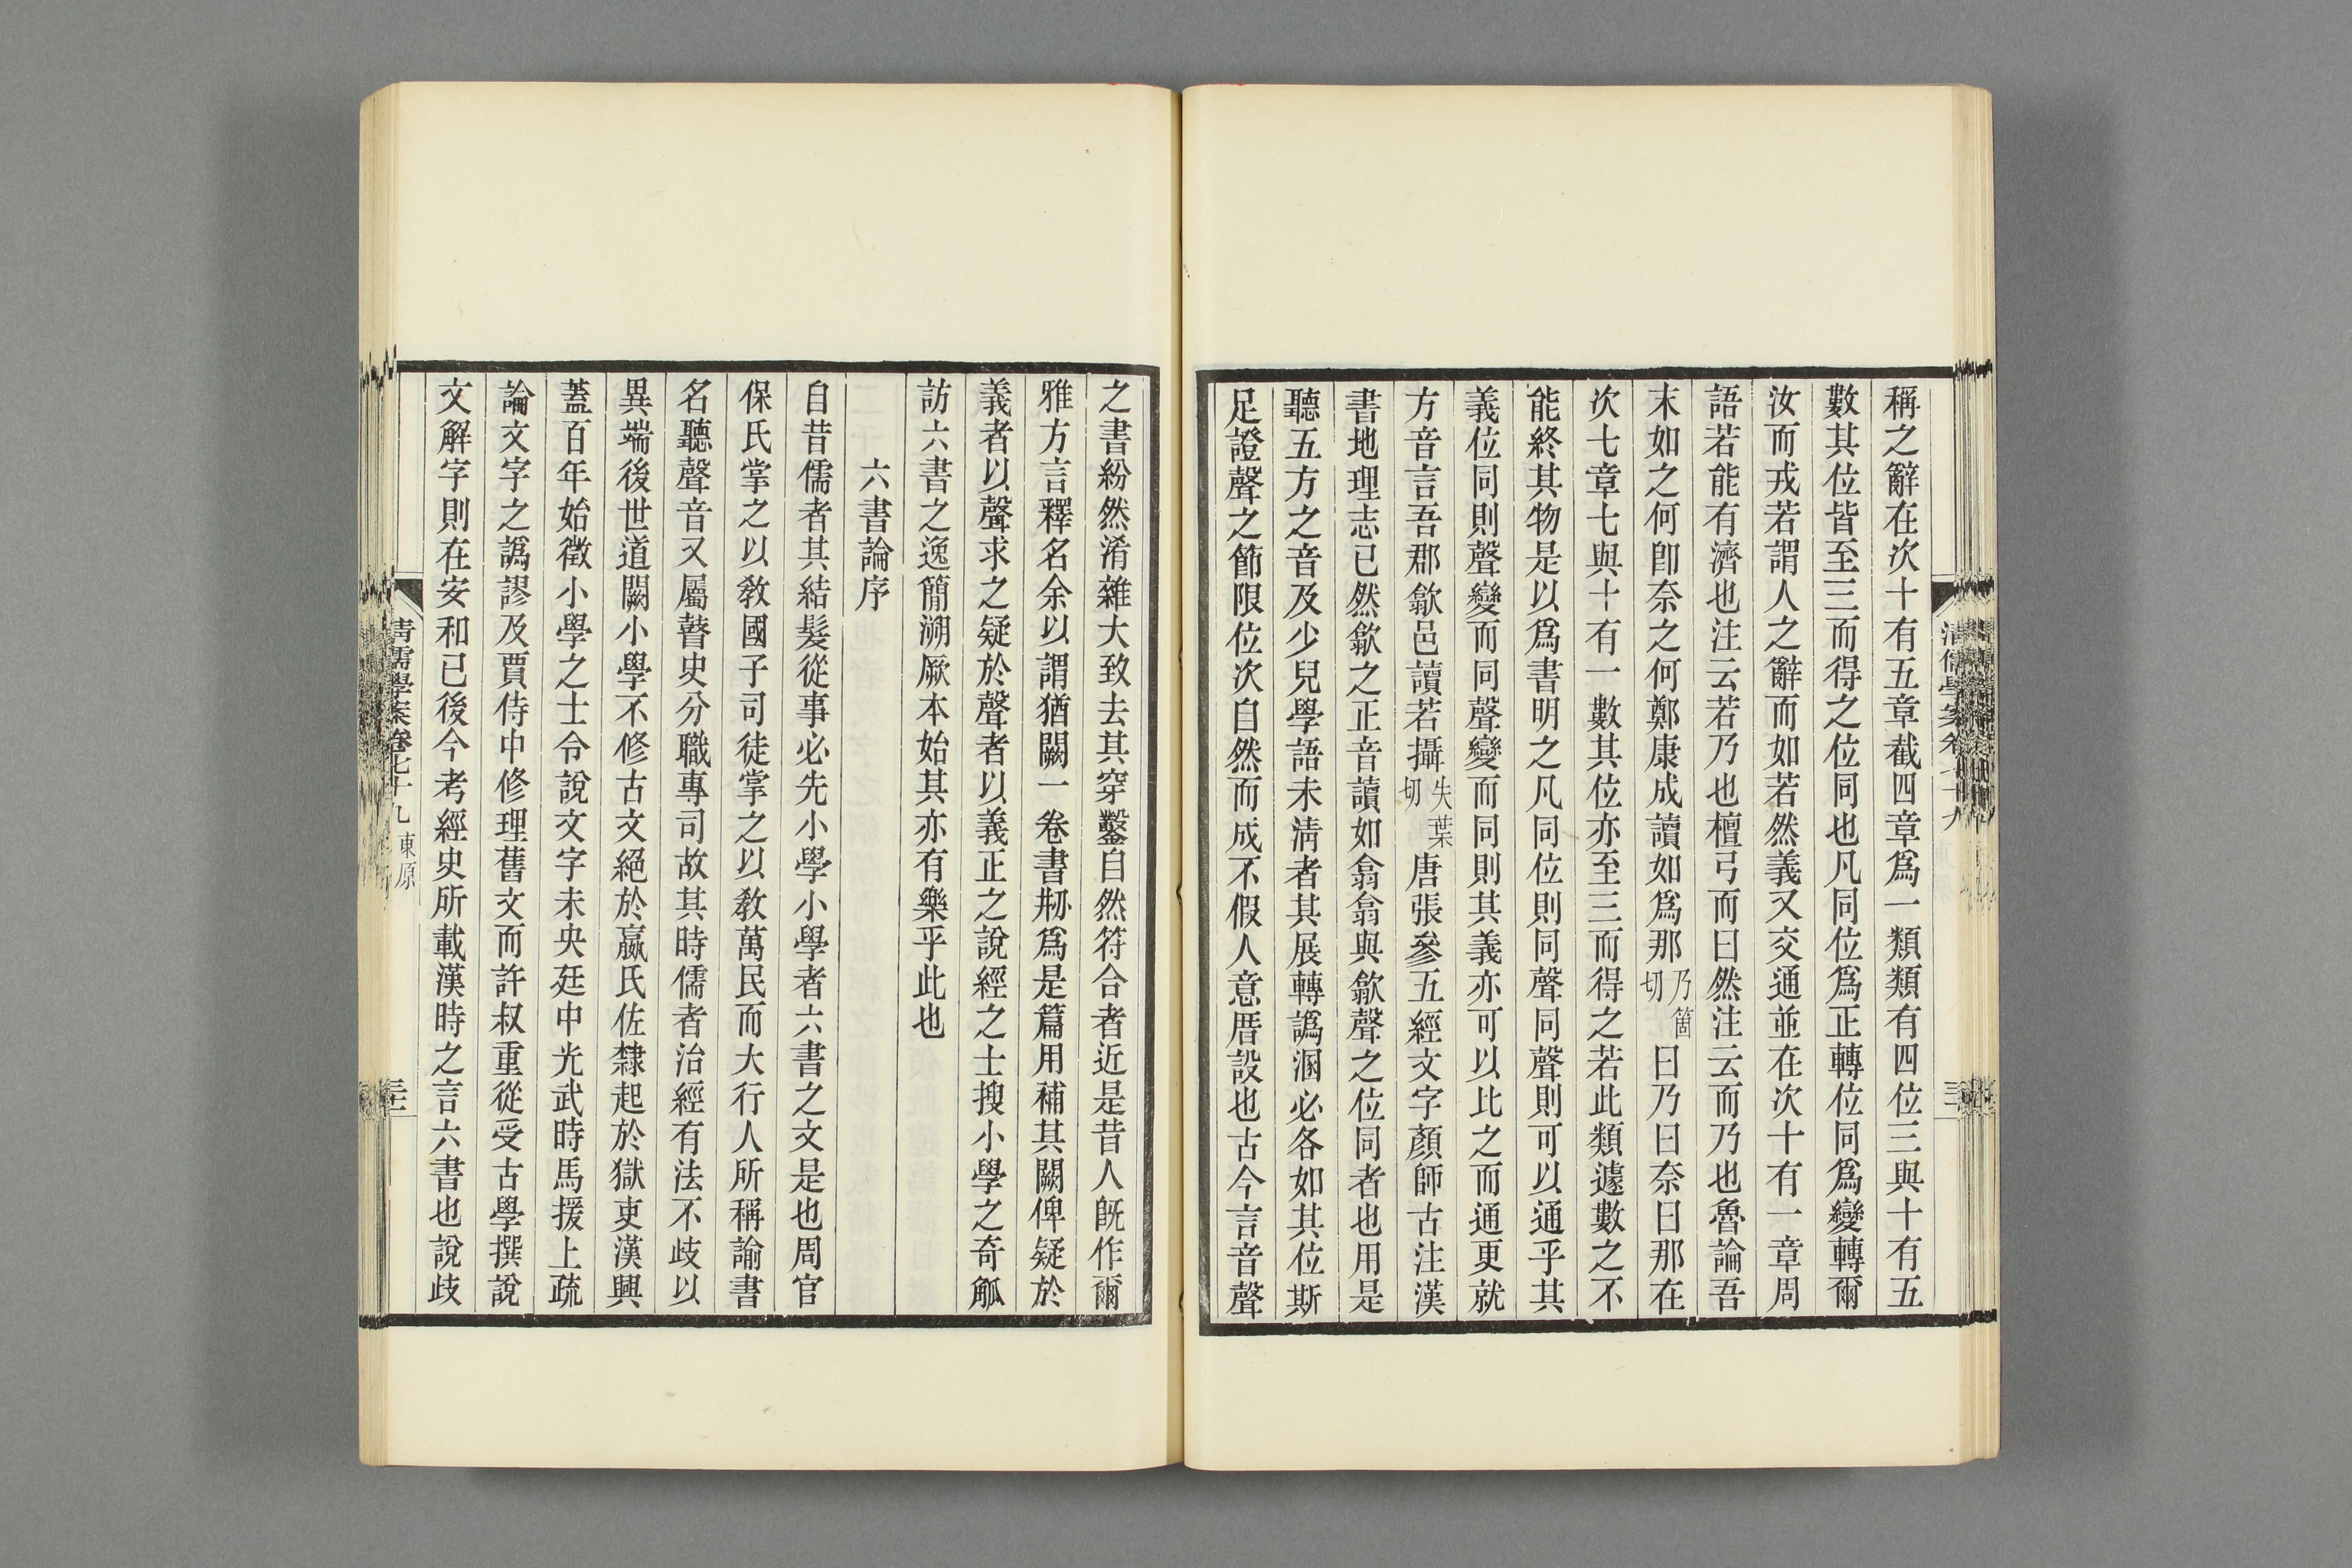 稱之辭在次十有五章截四章爲一類類有四位三與十有五
數其位皆至三而得之位同也凡同位爲正轉位同爲變轉爾
汝而戎若謂人之辭而如若然義又交通並在次十有一章周
語若能有濟也注云若乃也檀弓而曰然注云而乃也魯論吾
末如之何卽奈之何鄭康成讀如爲那乃箇切曰乃曰奈曰那在
次七章七與十有一數其位亦至三而得之若此類遽數之不
能終其物是以爲書明之凡同位則同聲同聲則可以通乎其
義位同則聲變而同聲變而同則其義亦可以比之而通更就
方音言吾郡歙邑讀若攝失葉切唐張參五經文字顏師古注漢
書地理志已然歙之正音讀如翕翕與歙聲之位同者也用是
聽五方之音及少兒學語未淸者其展轉譌溷必各如其位斯
足證聲之節限位次自然而成不假人意厝設也古今言音聲
之書紛然淆雜大致去其穿鑿自然符合者近是昔人旣作爾
雅方言釋名余以謂猶闕一卷書剏爲是篇用補其闕俾疑於
義者以聲求之疑於聲者以義正之說經之士搜小學之奇觚
訪六書之逸簡溯厥本始其亦有樂乎此也
六書論序
自昔儒者其結髮從事必先小學小學者六書之文是也周官
保氏掌之以敎國子司徒掌之以敎萬民而大行人所稱諭書
名聽聲音又屬瞽史分職專司故其時儒者治經有法不歧以
異端後世道闕小學不修古文絕於嬴氏佐隸起於獄吏漢興
蓋百年始徵小學之士令說文字未央廷中光武時馬援上疏
論文字之譌謬及賈侍中修理舊文而許叔重從受古學撰說
文解字則在安和已後今考經史所載漢時之言六書也說歧
淸儒學案卷七十九 東原